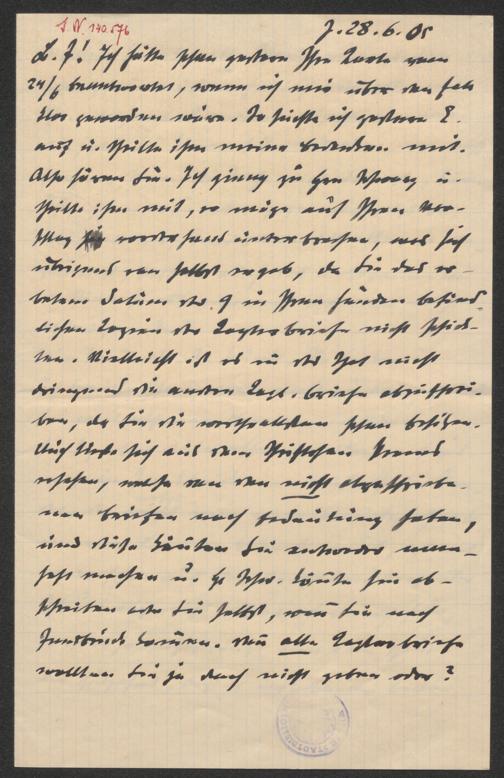 I. N. 140.576
J. 28.6.05
L. F.! Ich hätte schon gestern Ihre Karte vom
24/6 beantwortet, wenn ich mir über den Fall
klar geworden wäre. So suchte ich gestern E.
auf u. teilte ihm meine Bedenken mit.
Also hören Sie. Ich ging zu Hrn u.
teilte ihm mit, er möge auf Ihren
unterbrechen, was sich
übrigens von selbst ergab, da Sie das er-
betene Datum der 9 in Ihren Händen befind-
lichen Kopien der Briefe nicht schick-
ten. Vielleicht ist es in der That nicht
dringend die andern Briefe abzuschrei-
ben, da Sie die wertvollsten schon besitzen.
Auch ließe sich aus dem
ersehen, welche von den nicht abgeschriebe-
nen Briefen noch Bedeutung haben,
und diese könnten Sie entweder nam-
haft machen u. Hr Schw. könnte sie ab-
schreiben oder Sie selbst, wenn Sie nach
Innsbruck kommen. Denn alle Briefe
wollten Sie ja doch nicht geben oder?